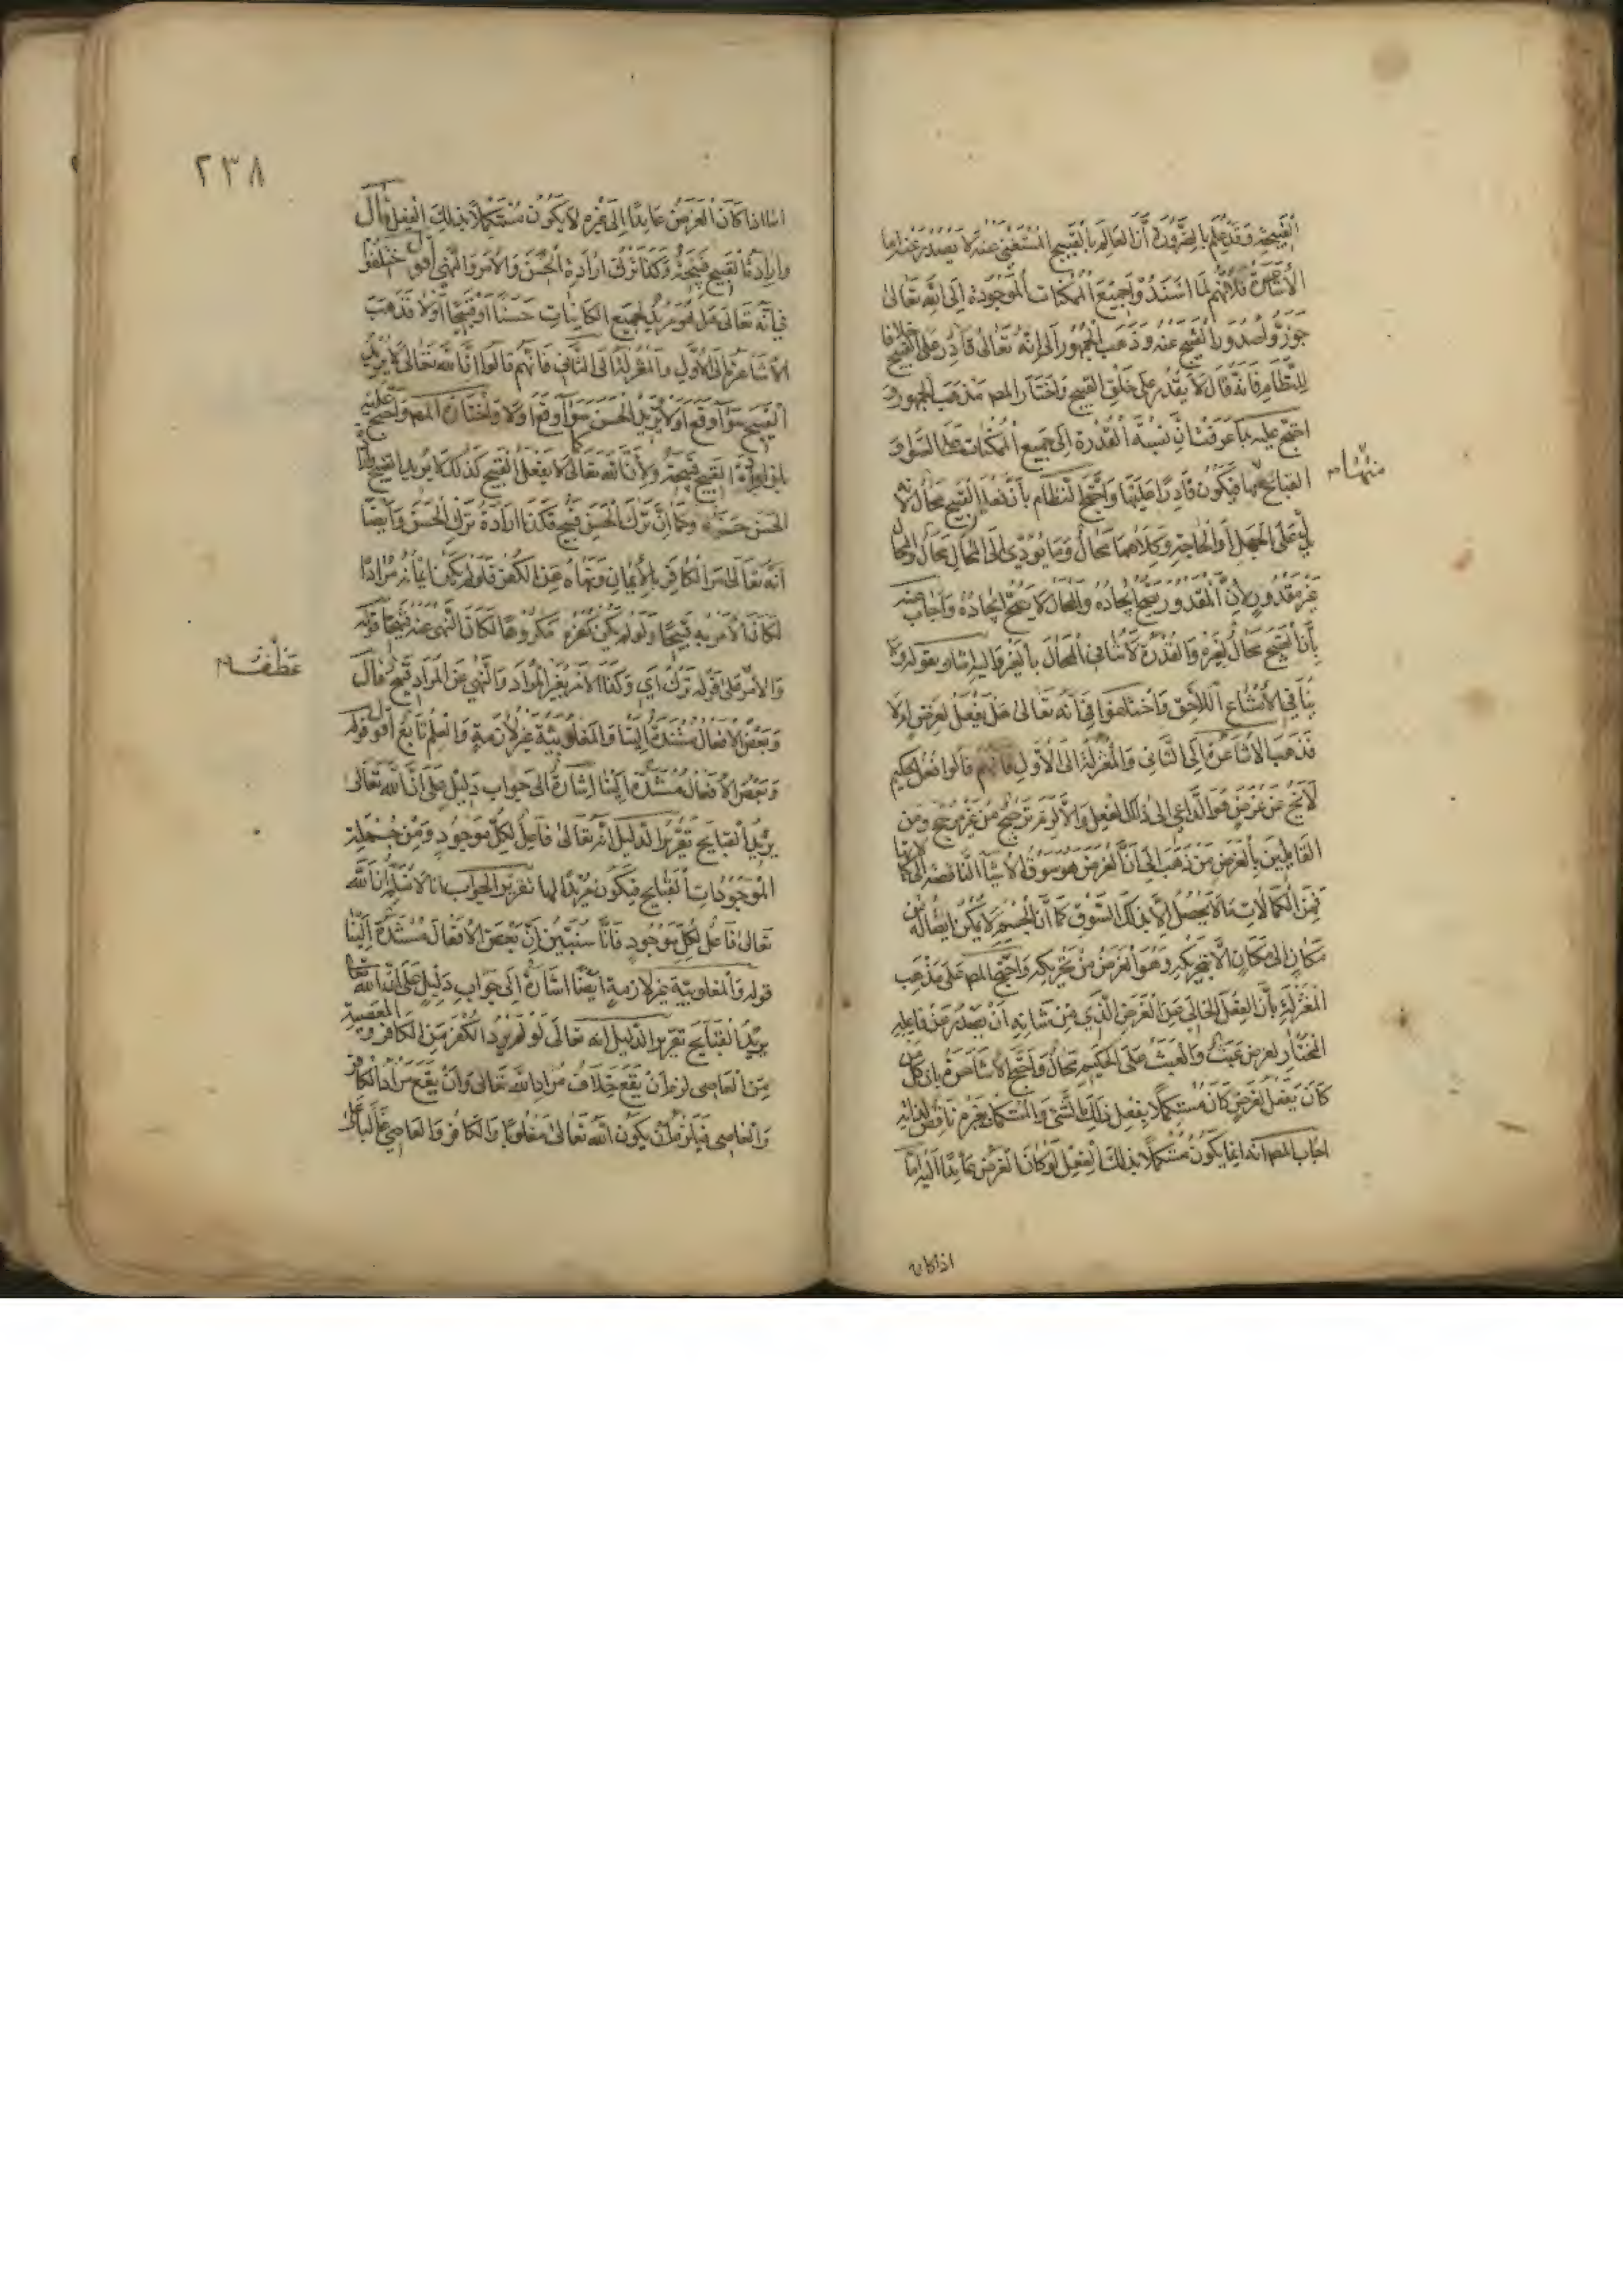 القبيحة وقد علم بالضرورة أن العالم بالقبيح المستغني عنه لا يصدر عنه اما
الأشاعرة فلأنهم لما اسندوا جميع الممكنات الموجودة إلى الله تعالى
جوزوا صدور القبيح عنه وذهب الجمهور الى انه تعالى قادر على القبيح خلافا
للنظام فانه قال لا يقدر على خلق القبيح واختار المصـ مذهب الجمهور و
احتج عليه بما عرفت ان نسبة القدرة إلى جميع الممكنات على السواء و
القبائح منها فيكون قادرا عليها واحتج النظام بأن فعل القبيح محال لانه
يدل على الجهل أو الحاجة وكلاهما محال وما يؤدي الى المحال محال والمحال
غير مقدور لأن المقدور يصح ايجاده والمحال لا يصح ايجاده واجاب عنه
بأن القبيح محال لغيره والقدرة لا تنافي المحال بالغير واليه اشار بقوله ولا
ينافي الامتناع اللاحق واختلفوا في أنه تعالى هل يفعل لغرض اولا
فذهب الاشاعرة إلى الثاني والمعتزلة الى الأول فانهم قالوا فعل الحكيم
لا يخ عن غرض هو الداعي إلى ذلك الفعل والا لزم ترجيح من غير مرجح ومن
القايلين بالغرض من ذهب الى ان الغرض هو سوق الاشياء الناقصة إلى كمالاتها
فمن الكمالات ما لا يحصل إلا بذلك السوق كما أن الجسم لا يمكن ايصاله من
مكان إلى مكان الا بتحريكه وهو الغرض من تحريكه واحتج المصـ على مذهب
المعتزلة بأن الفعل الخالي عن الغرض الذي من شانه ان يصدر عن فاعله
المختار لغرض عبث والعبث على الحكيم محال واحتج الاشاعرة بان كل من
كان يفعل لغرض كان مستكملا بفعل ذلك الشئ والمستكمل بغيره ناقص لذاته
اجاب المصـ انه انما يكون مستكملا بذلك الفعل لو كان الغرض عايدا اليه اما
منها
اذا كان
٢٣٨
اما اذا كان الغرض عايدا إلى غيره لا يكون مستكملا بذلك الفعل قال
وارادة القبيح قبيحة وكذا ترك ارادة الحسن والامر والنهي أقول اختلفوا
في أنه تعالى هل هو مريد لجميع الكاينات حسنا او قبيحا أو لا فذهب
الاشاعرة إلى الاول والمعتزلة الى الثاني فانهم قالوا ان الله تعالى لا يريد
القبيح سواء وقع او لا ويريد الحسن سواء وقع اولا واختاره المصـ واحتج عليه
بان ارادة القبيح قبيحة ولأن الله تعالى كما لا يفعل القبيح كذلك لا يريد القبيح
الحسن حسنة وكما ان ترك الحسن قبيح فكذا ارادة ترك الحسن وأيضا
انه تعالى امر الكافر بالايمان ونهاه عن الكفر فلو لم يكن ايمانه مرادا
لكان الامر به قبيحا ولو لم يكن كفره مكروها لكان النهي عنه قبيحا قوله
والامر على قوله ترك أي وكذا الامر بغير المراد والنهي عن المراد قبيح قال
وبعض الافعال مستندة الينا والمغلوبية غير لازمة والعلم تابع أقول قوله
وبعض الافعال مستندة الينا اشارة الى جواب دليل على ان الله تعالى
يريد القبايح تقرير الدليل انه تعالى فاعل لكل موجود ومن جملة
الموجودات القبايح فيكون مريدا لها تقرير الجواب انا لا نسلم أن الله
تعالى فاعل لكل موجود فانا سنبين ان بعض الافعال مستندة الينا
قوله والمغلوبية غير لازمة أيضا اشارة إلى جواب دليل على ان الله تعا
يريد القبايح تقرير الدليل انه تعالى لو لم يرد الكفر من الكافر والمعصية
من العاصي لزم أن يقع خلاف مراد الله تعالى وان يقع مراد الكافر
والعاصي فيلزم أن يكون الله تعالى مغلوبا والكافر والعاصي غالبا
عطف